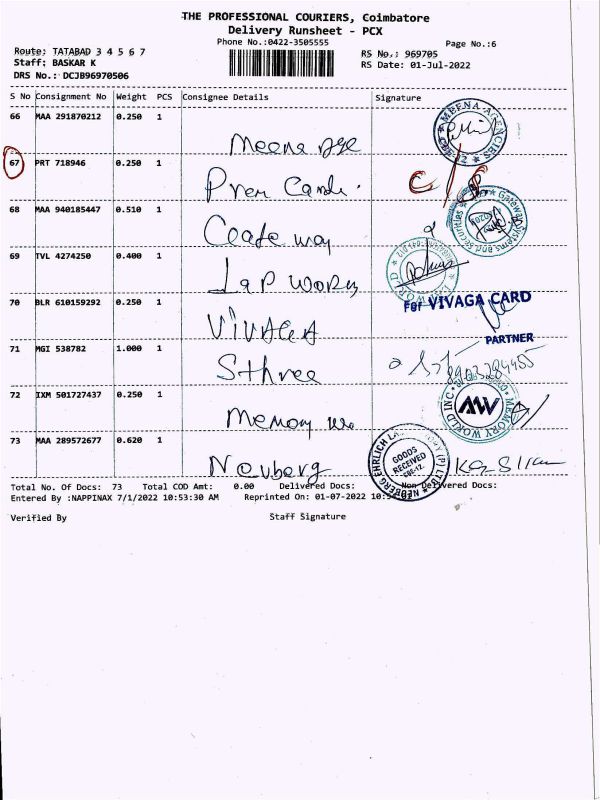 THE PROFESSIONAL COURIERS, Coimbatore
Delivery Runsheet - PCX
Phone No.:0422-3505555
Page No.:6
Route: TATABAD 3 4 5 6 7
Staff: BASKAR K
DRS No.: DCJB96970506
RS No.: 969705
RS Date: 01-Jul-2022
S No Consignment No Weight PCS Consignee Details Signature
66 MAA 291870212 0.250 1
Meena Age
MEENA AGENCIES
67 PRT 718946 0.250 1
Prem Cards.
68 MAA 940185447 0.510 1
Gateway
Gateway Systems and Securities
69 IVL 4274250 0.400 1
Lap World
70 BLR 610159292 0.250 1
VIVAGA
For VIVAGA CARD
PARTNER
71 MGI 538782 1.000 1
Sthree
8903284455
72 IXM 501727437 0.250 1
Memory
MEMORY WORLD INC
MW
73 MAA 289572677 0.620 1
Neuberg
NEUBERG EHRLICH (P) LTD
GOODS RECEIVED
CBE-12.
Total No. Of Docs: 73 Total COD Amt: 0.00 Delivered Docs: Non Delivered Docs:
Entered By :NAPPINAX 7/1/2022 10:53:30 AM Reprinted On: 01-07-2022
Verified By Staff Signature